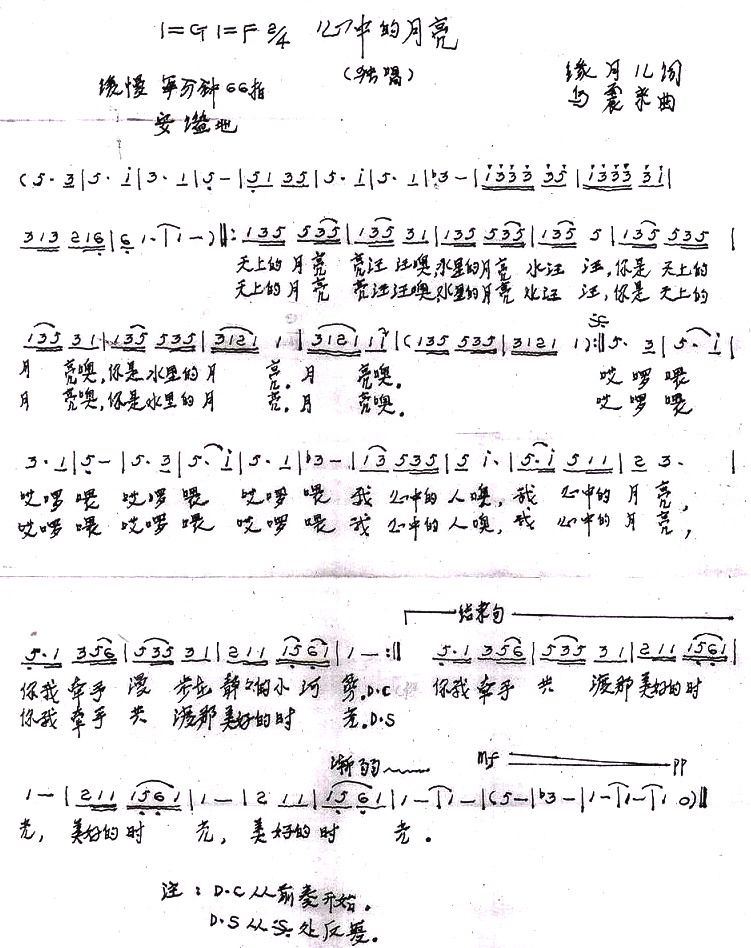 1=G 1=F 2/4 心中的月亮
(独唱)
缓慢 每分钟66拍
缘月儿词
安谧地
乌震来曲
(5· 3|5· i|3· 1|5 -|51 35|5· i|5· 1|♭3 -|i333 35|i333 3i|
313 216|6 1·|1 -)‖:135 535|135 31|135 535|135 5|135 535|
天上的月亮 亮汪汪噢,水里的月亮 水汪汪,你是天上的
天上的月亮 亮汪汪噢,水里的月亮 水汪汪,你是天上的
135 31|135 535|3121 1|3121 1i|(135 535|3121 1):‖5· 3|5· i|
月 亮噢,你是水里的月 亮.月 亮噢. 哎啰喂
月 亮噢,你是水里的月 亮.月 亮噢. 哎啰喂
3· 1|5 -|5· 3|5· i|5· 1|♭3 -|13 535|5 i·|5·i 511|2 3·|
哎啰喂 哎啰喂 哎啰喂 我心中的人噢,我 心中的月亮,
哎啰喂 哎啰喂 哎啰喂 我心中的人噢,我 心中的月亮,
结束句
5·1 356|535 31|211 1561|1 -:‖ 5·1 356|535 31|211 1561|
你我牵手 漫 步在静静的小河 旁.D.C 你我牵手 共 渡那美好的时
你我牵手 共 渡那美好的时 光.D.S
渐弱 mf pp
1 -|211 1561|1 -|2 11|15 61|1 -|1 -|(5 -|♭3 -|1 -|1 -|1 0)‖
光, 美好的时 光, 美好的时 光.
注:D.C从前奏开始.
D.S从S处反复.